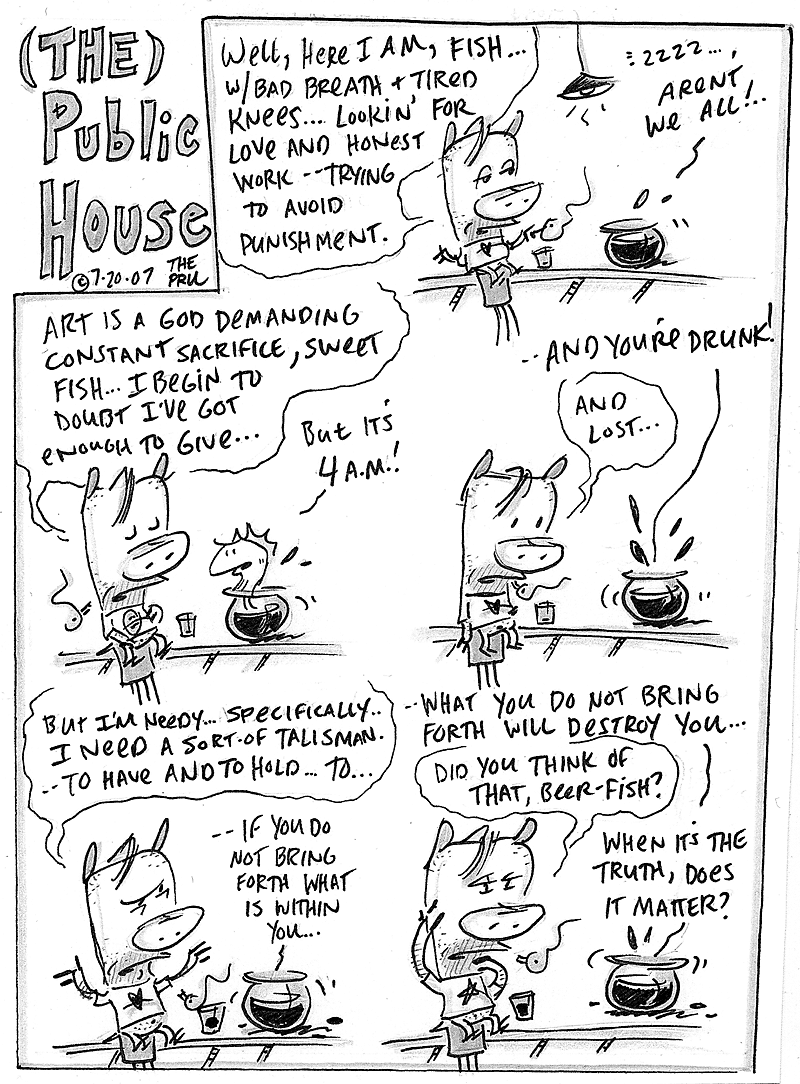 (THE)
Public
House
©7-20-07 THE
PRU
Well, Here I AM, FISH...
W/BAD BREATH + TIRED
KNEES... LOOKIN' FOR
LOVE AND HONEST
WORK -- TRYING
TO AVOID
PUNISHMENT.
:ZZZZ...,
ARENT
WE ALL!..
ART IS A GOD DEMANDING
CONSTANT SACRIFICE, SWEET
FISH... I BEGIN TO
DOUBT I'VE GOT
ENOUGH TO GIVE...
BUT IT'S
4 A.M.!
-- AND YOU'RE DRUNK!
AND
LOST...
BUT I'M NEEDY... SPECIFICALLY..
I NEED A SORT-OF TALISMAN.
-- TO HAVE AND TO HOLD... TO...
-- IF YOU DO
NOT BRING
FORTH WHAT
IS WITHIN
YOU...
-- WHAT YOU DO NOT BRING
FORTH WILL DESTROY YOU...
DID YOU THINK OF
THAT, BEER-FISH?
WHEN IT'S THE
TRUTH, DOES
IT MATTER?